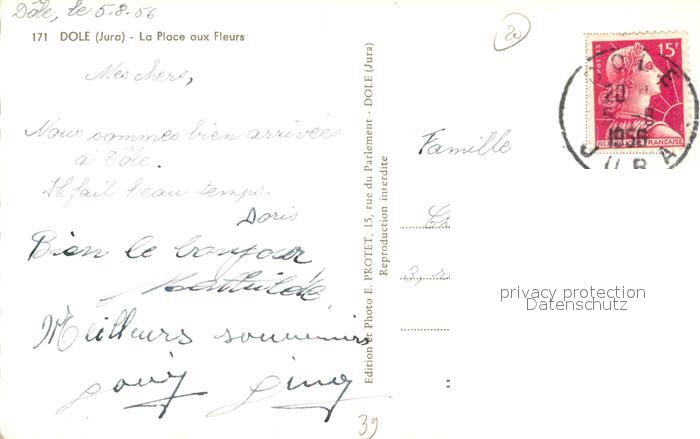 Dôle, le 5.8.56
171 DOLE (Jura) - La Place aux Fleurs
Mes chers,
Nous sommes bien arrivées
à Dôle.
Il fait beau temps.
Doris
Bien le bonjour
Mathilde
Meilleurs souvenirs
Edition et Photo E. PROTET, 15, rue du Parlement - DOLE (Jura)
Reproduction interdite
20
POSTES
15F
REPUBLIQUE FRANÇAISE
1956
JURA
Famille
3, r
privacy protection
Datenschutz
39